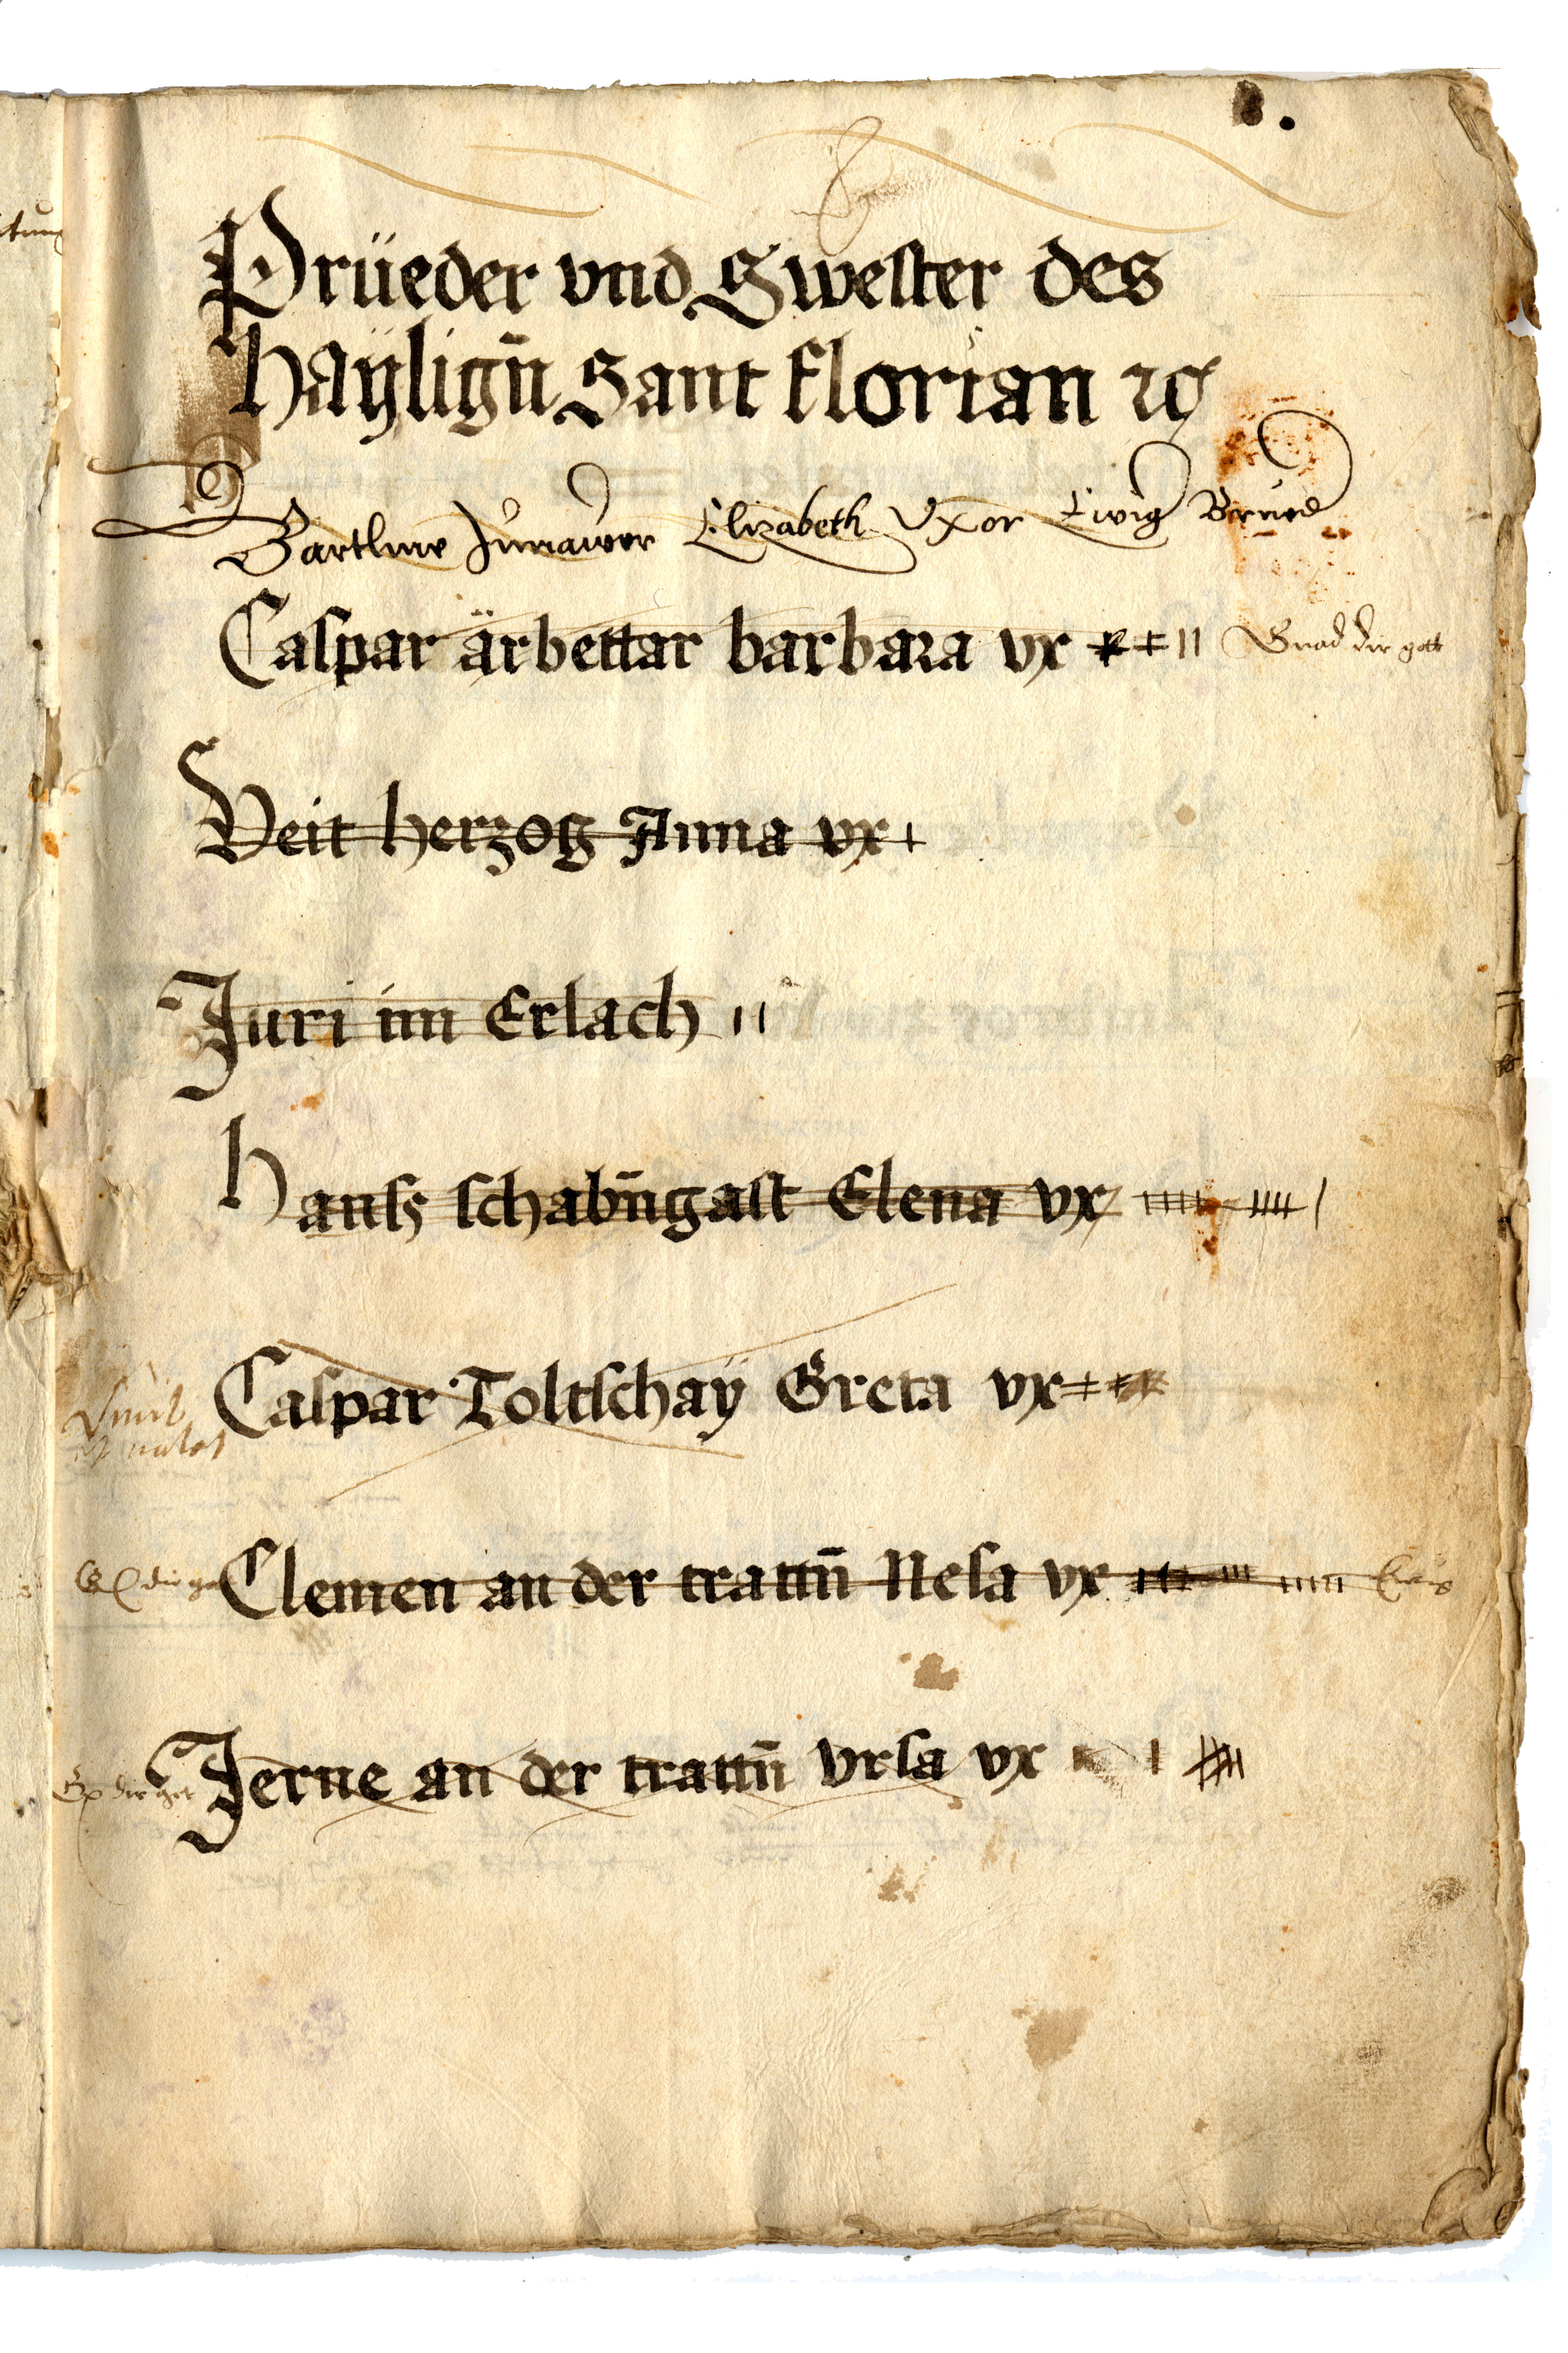 Prüeder vnd Swester des
Haÿligñ Sant Florian ꝛc
Bartlme Elizabeth Vxor Ewig Brued
Caspar ärbettar barbara vx Gnad dir gott
Veit herzog Anna vx
Juri im Erlach
Hanſz schabñgast Elena vx
Caspar Toltschaÿ Greta vx
Clemen an der trattñ Nesa vx
Jerne an der trattñ Vrsa vx